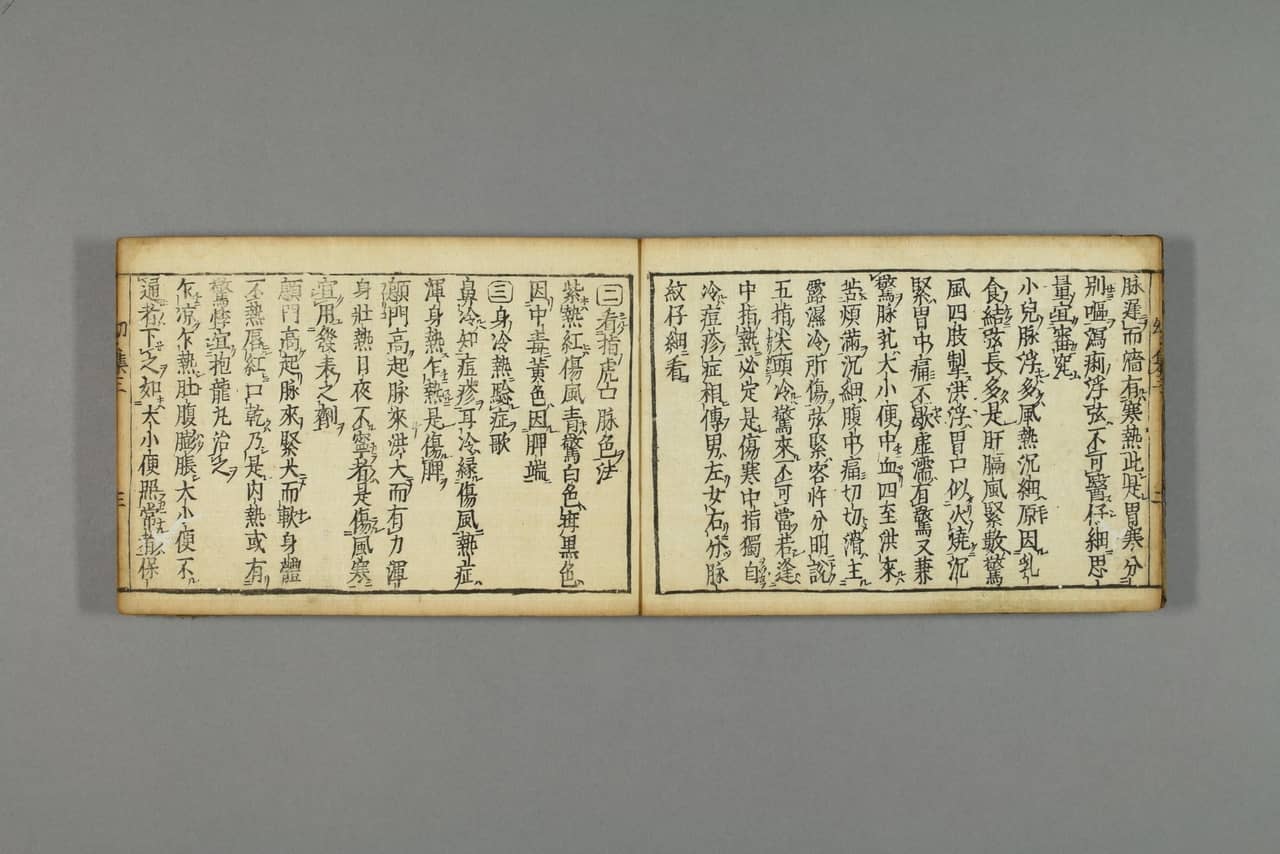 脉遲而濇有寒熱此是胃寒分
別嘔瀉痢浮弦不可醫仔細思
量宜審究
小兒脉浮多風熱沉細原因乳
食結弦長多是肝膈風緊數驚
風四肢掣洪浮胃口似火燒沉
緊胃中痛不歇虛濡有驚又兼
驚脉芤大小便中血四至洪來
苦煩滿沉細腹中痛切切滑主
露濕冷所傷弦緊客忤分明說
五指尖頭冷驚來不可當若逢
中指熱必定是傷寒中指獨自
冷痘疹症相傳男左女右分脉
紋仔細看
二看指虎口脉色法
紫熱紅傷風青驚白色疳黑色
因中毒黃色因脾端
三身冷熱驗症歌
鼻冷知痘疹耳冷緑傷風熱症
渾身熱乍熱是傷脾
顖門高起脉來洪大而有力渾
身壯熱日夜不寧者是傷風寒
宜用發表之劑
顖門高起脉來緊大而軟身體
不熱唇紅口乾乃是内熱或有
驚悸宜抱龍丸治之
乍凉乍熱肚腹膨脹大小便不
通者下之如大小便照常者保